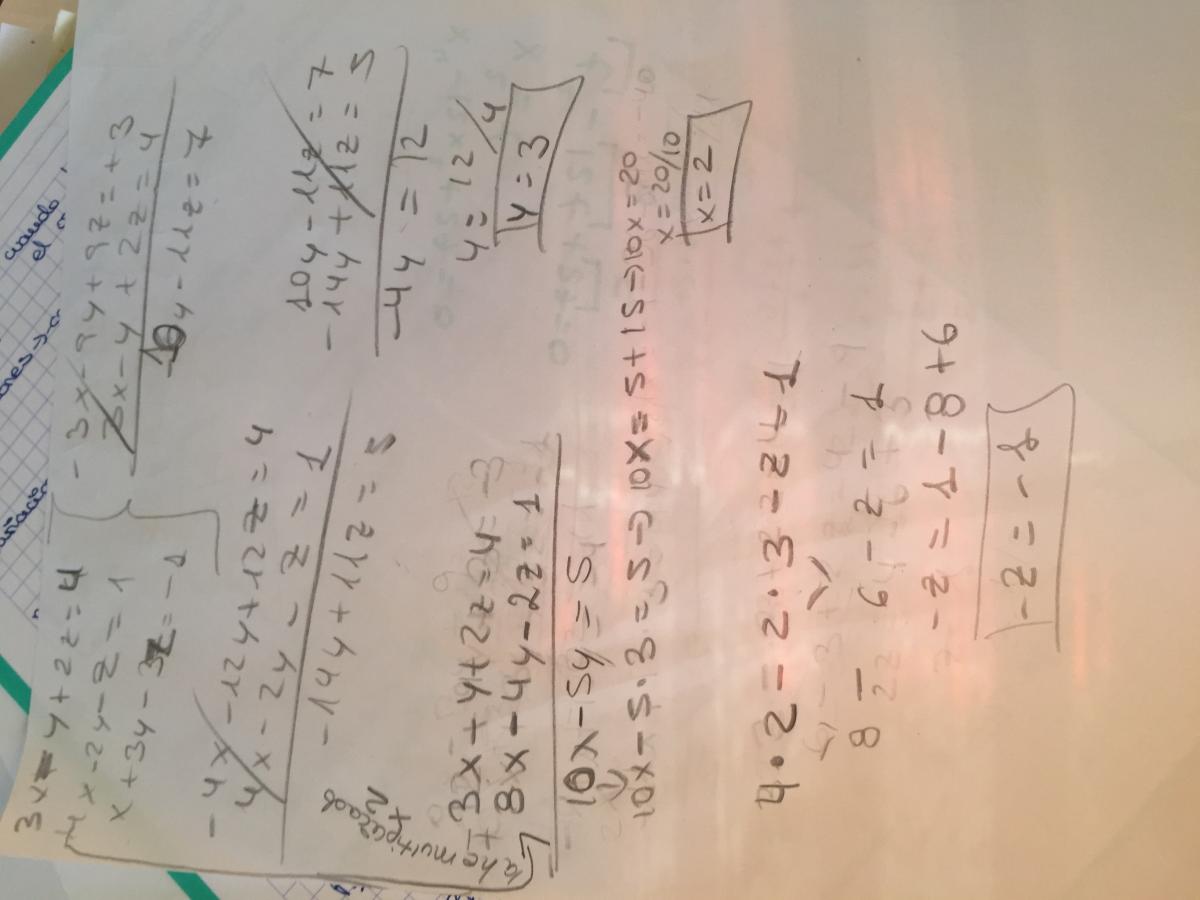 3x - y + 2z = 4
4x - 2y - z = 1
x + 3y - 3z = -1
- 3x - 9y + 9z = + 3
3x - y + 2z = 4
10y - 11z = 7
- 4x - 12y + 12z = 4
4x - 2y - z = 1
- 14y + 11z = 5
10y - 11z = 7
- 14y + 11z = 5
- 4y = 12
y = 12/4
y = 3
x 2
+ 3x + y + 2z = 4
8x - 4y - 2z = 1
10x - 5y = 5
10x - 5 · 3 = 5 → 10x = 5 + 15 → 10x = 20
x = 20/10
x = 2
4 · 2 - 2 · 3 - z = 1
8 - 6 - z = 1
- z = 1 - 8 + 6
- z = - 1
cuando
el